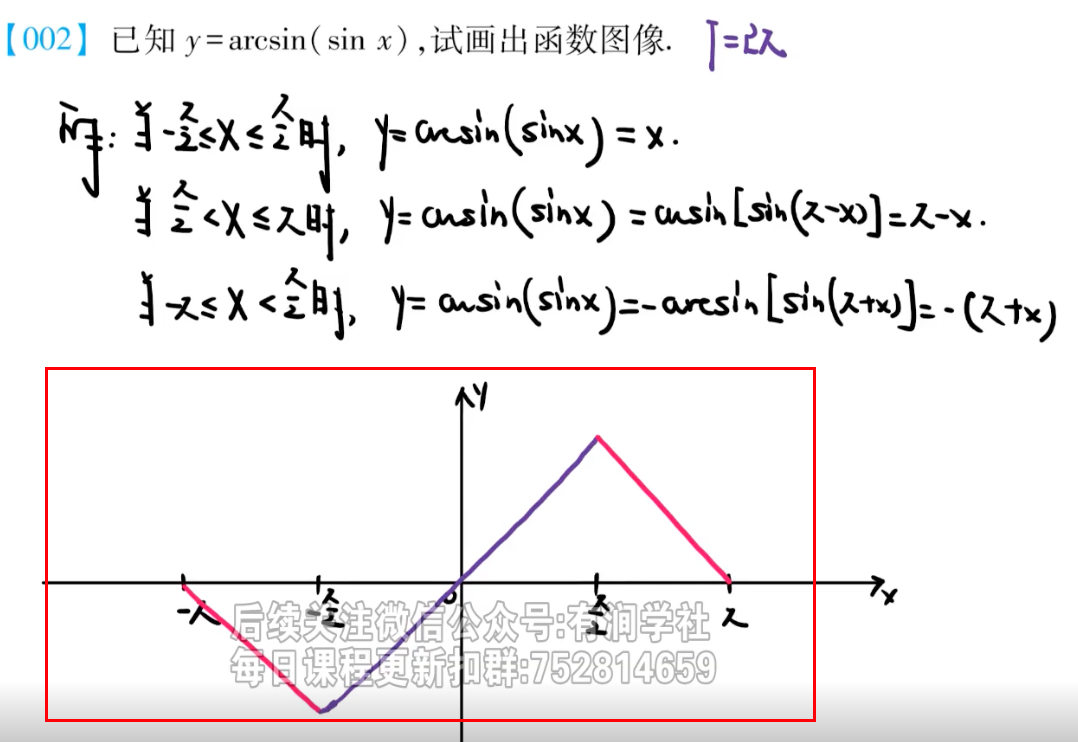 【002】已知 y=arcsin(sin x),试画出函数图像. T=2π
解: 当-π/2≤x≤π/2时, y=arcsin(sinx)=x.
当 π/2<x≤π时, y=arcsin(sinx)=arcsin[sin(π-x)]=π-x.
当-π≤x<π/2时, y=arcsin(sinx)=-arcsin[sin(π+x)]=-(π+x)
y
x
-π -π/2 0 π/2 π
后续关注微信公众号:有润学社
每日课程更新扣群:752814659